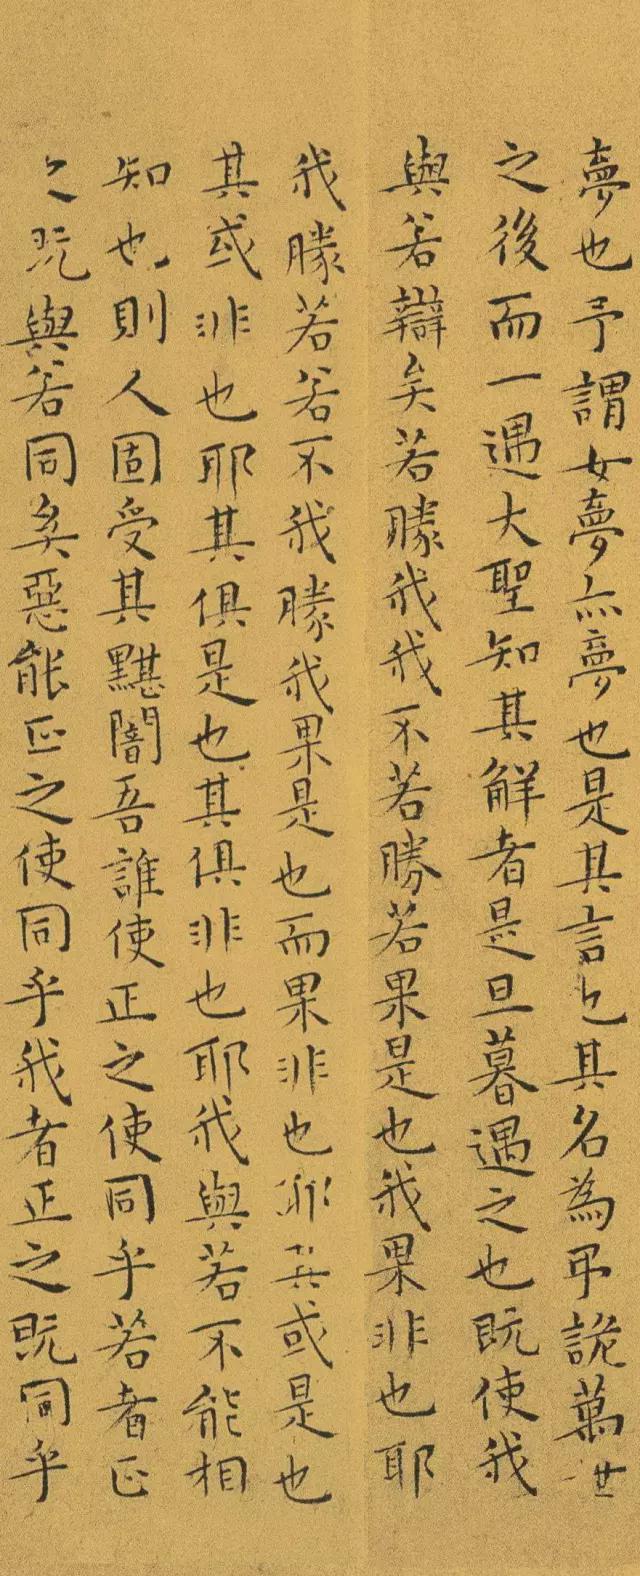 夢也予謂女夢亦夢也是其言也其名為弔詭萬世
之後而一遇大聖知其解者是旦暮遇之也既使我
與若辯矣若勝我我不若勝若果是也我果非也耶
我勝若若不我勝我果是也而果非也耶其或是也
其或非也耶其俱是也其俱非也耶我與若不能相
知也則人固受其黮闇吾誰使正之使同乎若者正
之既與若同矣惡能正之使同乎我者正之既同乎